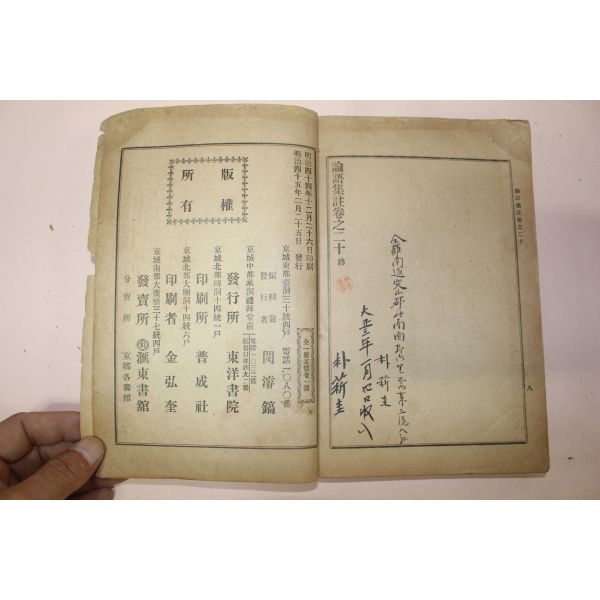 論語集註卷之二十 終
論語集註卷之二十
八
大正三年一月四日收入
朴薪圭
版權
所有
明治四十四年十二月二十六日印刷
明治四十五年二月二十五日 發行
全一冊定價金一圓
京城東部壺洞三十統四戶 電話一〇八〇番
編輯兼
發行者 閔濬鎬
京城中部承洞禮拜堂前
發行所 東洋書院
京城北部磚洞十四統一戶
印刷所 普成社
京城北部大廟洞十四統六戶
印刷者 金弘奎
京城南部大廣橋三十七統四戶
發賣所 滙東書館
分賣所 京鄉各書館